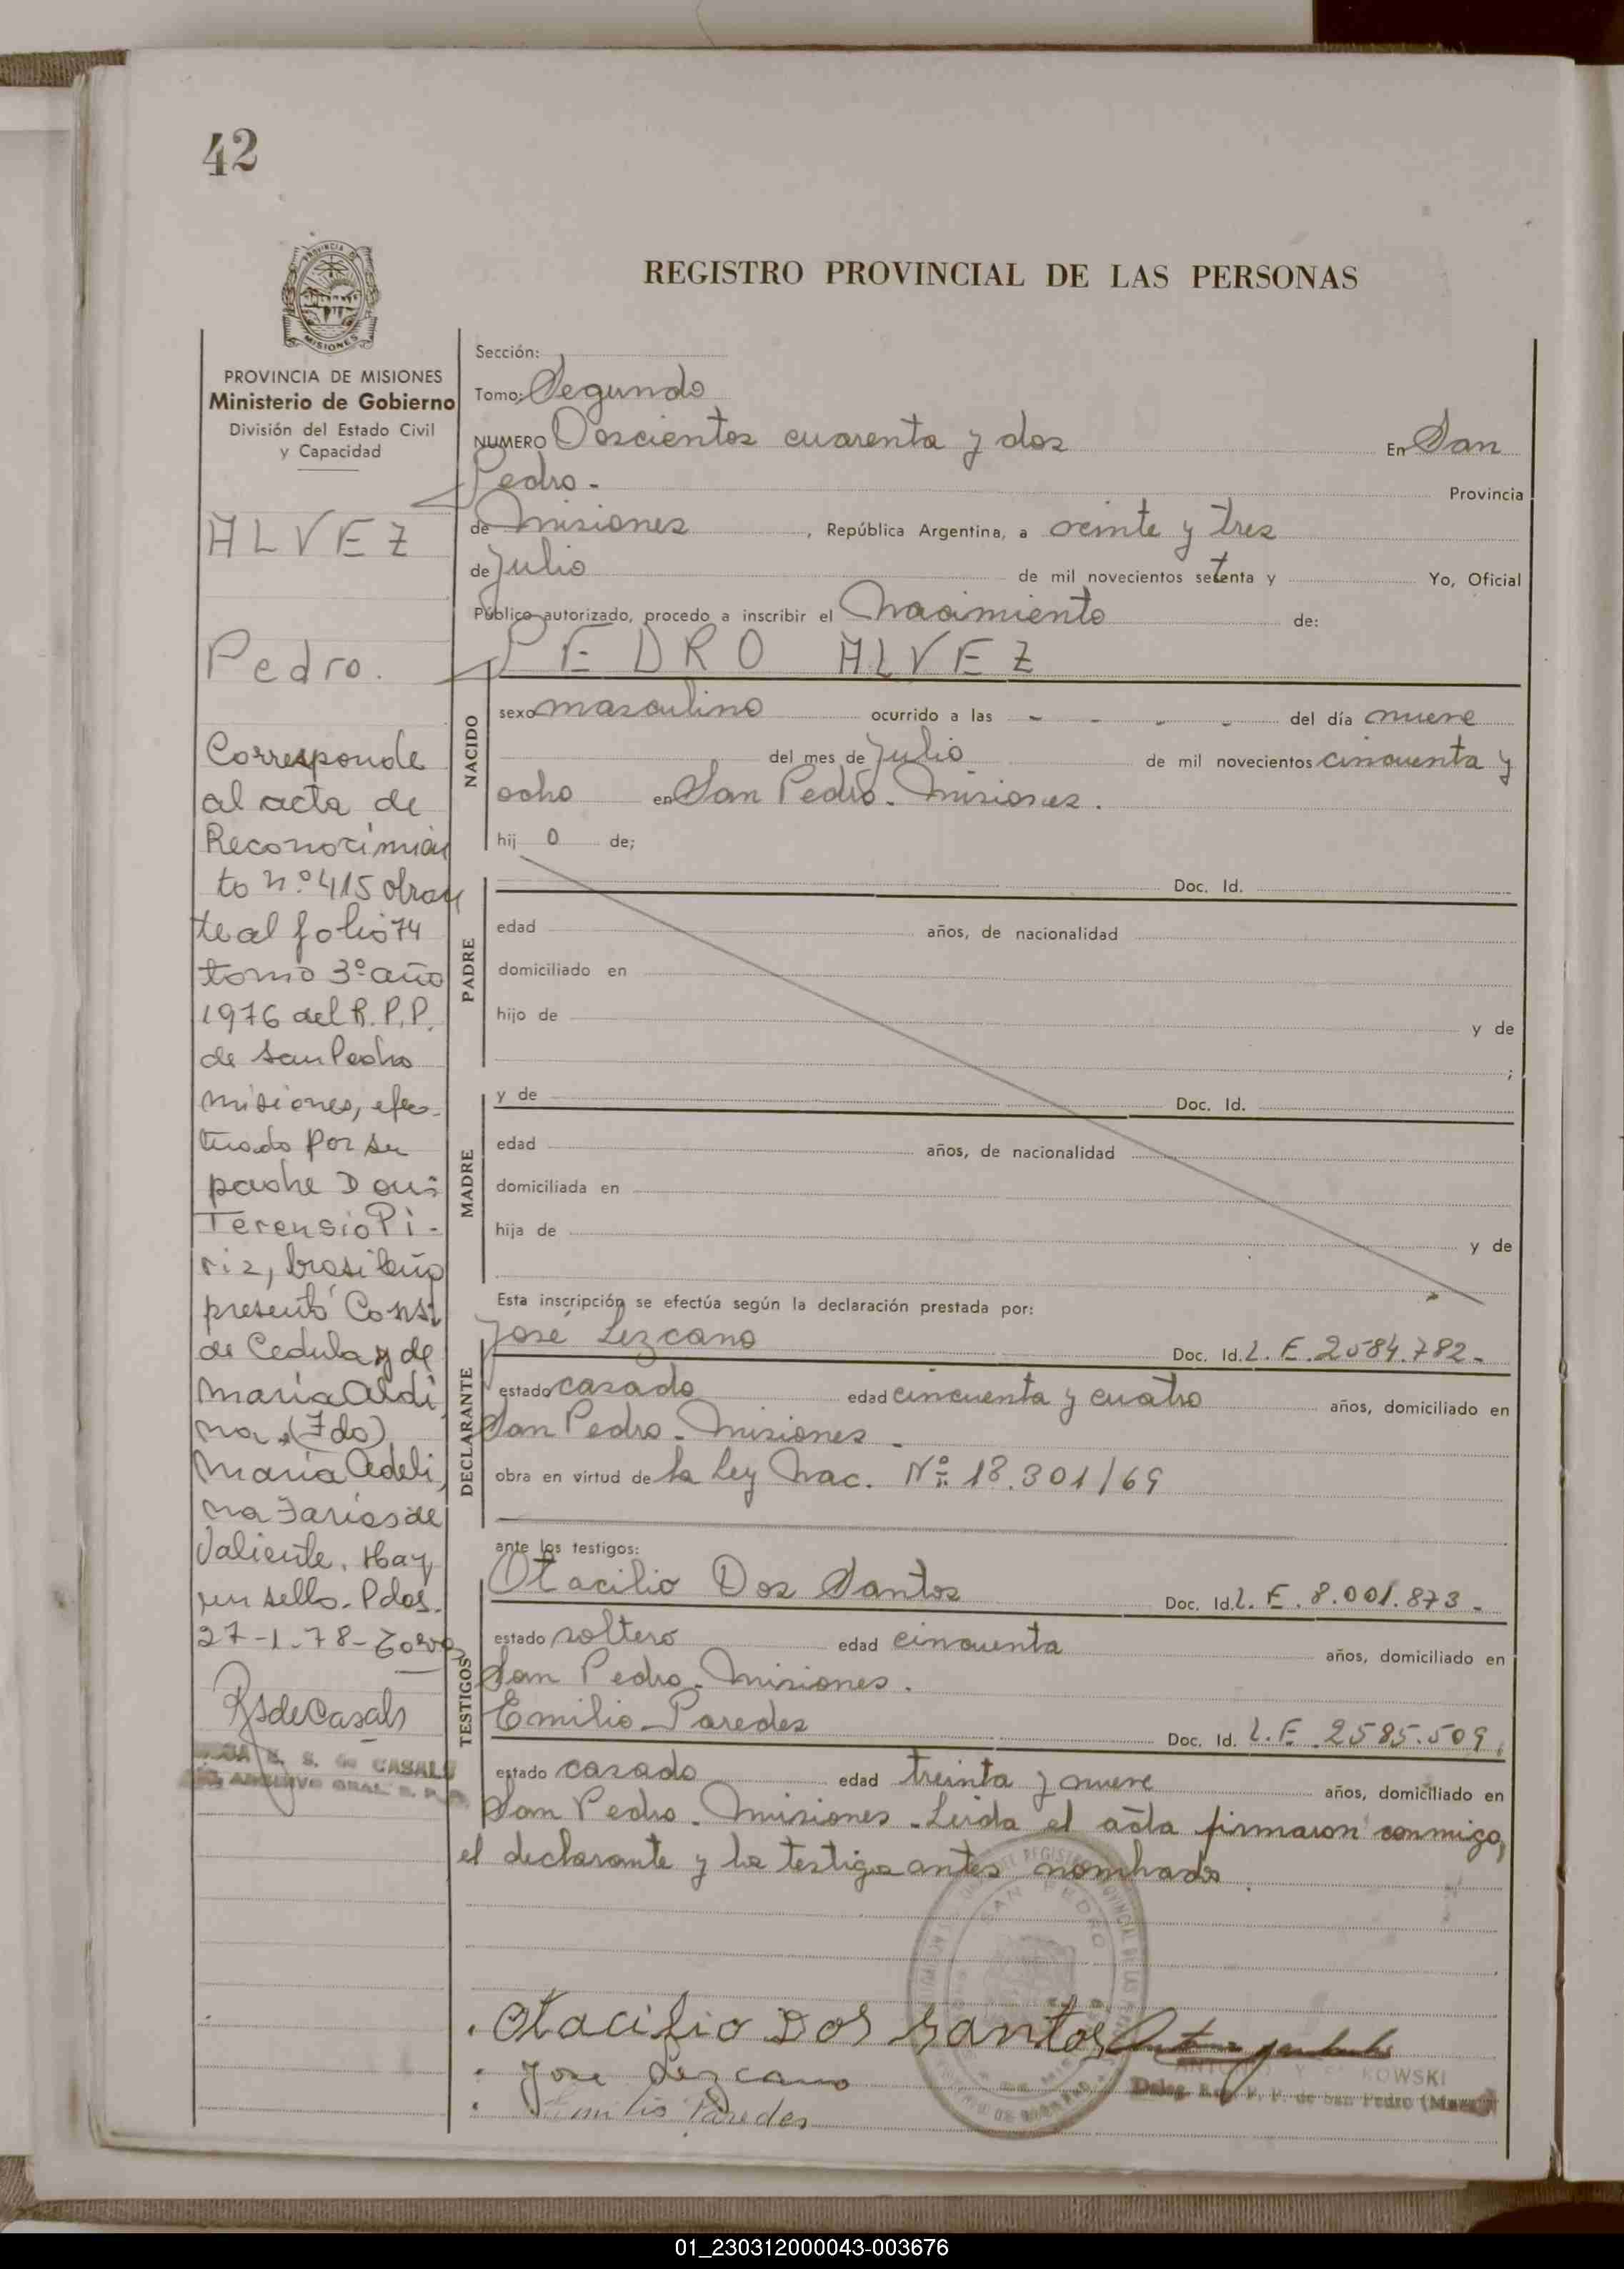 42
PROVINCIA DE
MISIONES
PROVINCIA DE MISIONES
Ministerio de Gobierno
División del Estado Civil
y Capacidad
ALVEZ
Pedro.
Corresponde
al acta de
Reconocimien
to n.º 415 obran
te al folio 74
tomo 3º año
1976 del R.P.P.
de San Pedro
misiones, efec-
tuado por su
padre Don:
Terensio Pi-
riz, brasileño
presentó Const
de Cedula y de
María Aldi
na, (Fdo)
María Adeli
na Farias de
Valiente. Hay
un sello. Pdas.
27-1-78-
RS de Casals
E. S. de CASALS
ARCHIVO GRAL. R. P. P.
REGISTRO PROVINCIAL DE LAS PERSONAS
Sección:
Tomo: Segundo
NUMERO Doscientos cuarenta y dos En San
Pedro - Provincia
de Misiones, República Argentina, a veinte y tres
de Julio de mil novecientos setenta y Yo, Oficial
Público autorizado, procedo a inscribir el Nacimiento de:
PEDRO ALVEZ
NACIDO
sexo masculino ocurrido a las - - - - del día nueve
del mes de Julio de mil novecientos cincuenta y
ocho en San Pedro - Misiones.
hij o de;
Doc. Id.
PADRE
edad años, de nacionalidad
domiciliado en
hijo de y de
;
MADRE
y de Doc. Id.
edad años, de nacionalidad
domiciliada en
hija de y de
Esta inscripción se efectúa según la declaración prestada por:
DECLARANTE
José Lezcano Doc. Id. L. E. 2584.782-
estado casado edad cincuenta y cuatro años, domiciliado en
San Pedro - Misiones -
obra en virtud de la Ley Nac. Nº 18.301/69
ante los testigos:
TESTIGOS
Otacilio Dos Santos Doc. Id. L. E. 8.001.873-
estado soltero edad cincuenta años, domiciliado en
San Pedro - Misiones.
Emilio Paredes Doc. Id. L.E. 2585.509.
estado casado edad treinta y nueve años, domiciliado en
San Pedro - Misiones - Leida el acta firmaron conmigo,
el declarante y los testigos antes nombrados.
SAN PEDRO
Otacilio Dos Santos
Jose Lezcano
KOWSKI
Deleg. R. P. P. de San Pedro
Emilio Paredes
01_230312000043-003676